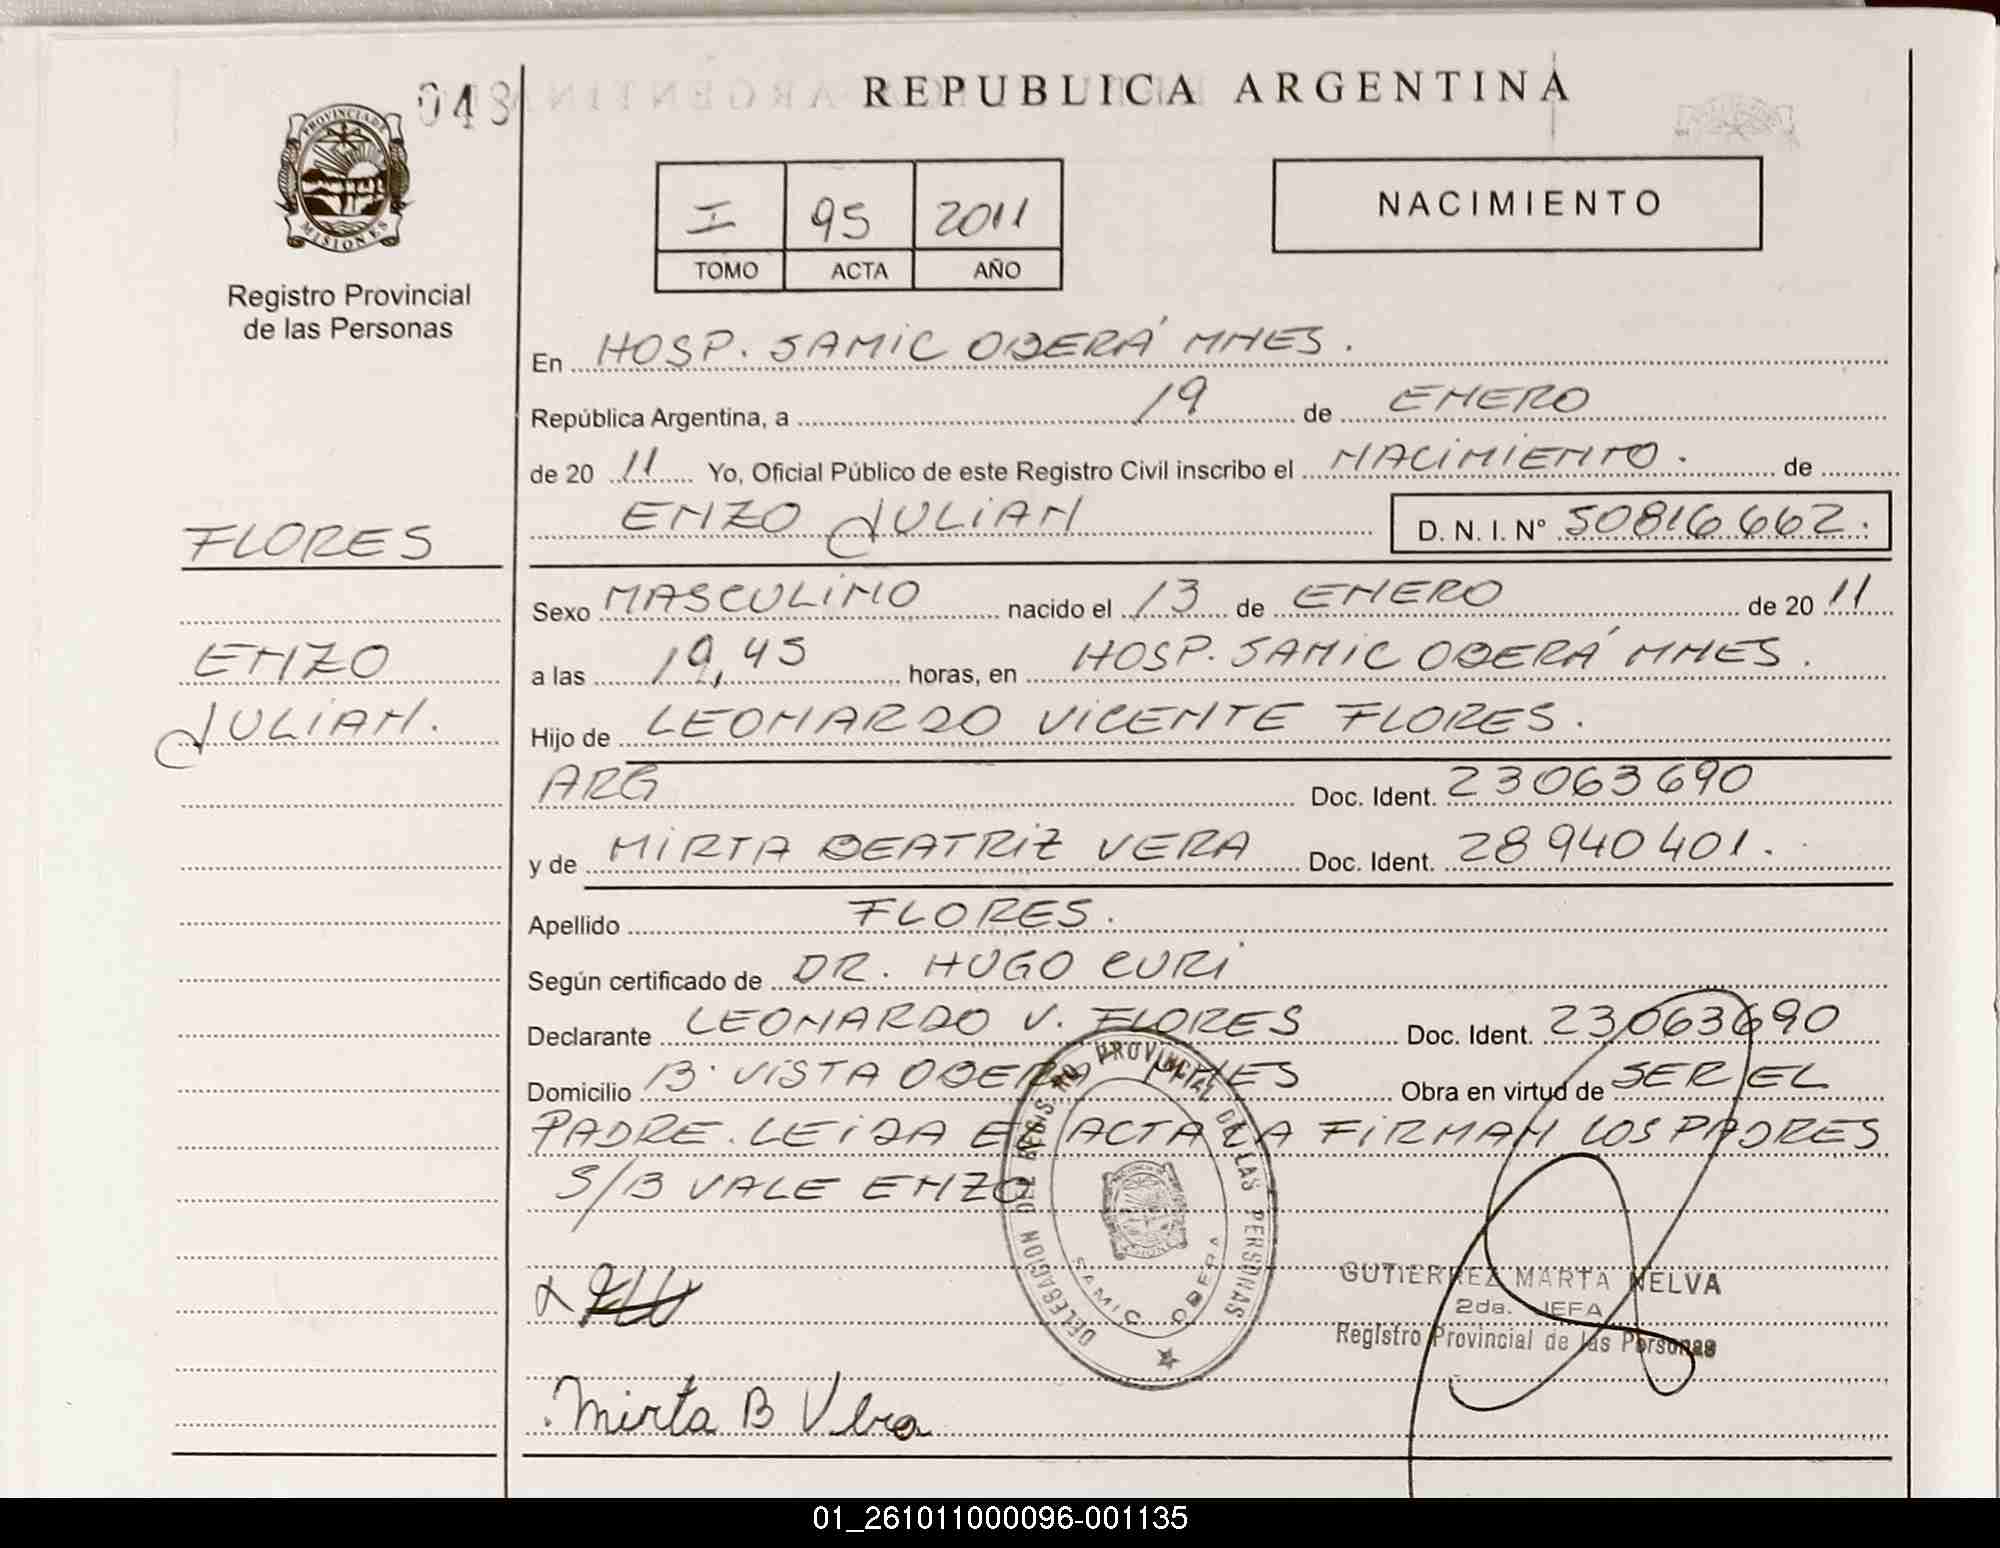 048
REPUBLICA ARGENTINA
PROVINCIA DE
MISIONES
Registro Provincial
de las Personas
I 95 2011
TOMO ACTA AÑO
NACIMIENTO
En HOSP. SAMIC OBERÁ MNES.
República Argentina, a 19 de ENERO
de 20 11 Yo, Oficial Público de este Registro Civil inscribo el NACIMIENTO. de
ENZO JULIAN D. N. I. N° 50816662.
FLORES
ENZO
JULIAN.
Sexo MASCULINO nacido el 13 de ENERO de 20 11
a las 19,45 horas, en HOSP. SAMIC OBERÁ MNES.
Hijo de LEONARDO VICENTE FLORES.
ARG Doc. Ident. 23063690
y de MIRTA BEATRIZ VERA Doc. Ident. 28940401.
Apellido FLORES.
Según certificado de DR. HUGO CURI
Declarante LEONARDO V. FLORES Doc. Ident. 23063690
Domicilio B° VISTA OBERA MNES Obra en virtud de SER EL
PADRE. LEIDA EL ACTA LA FIRMAN LOS PADRES
S/B VALE ENZO
DELEGACION DEL REGISTRO PROVINCIAL DE LAS PERSONAS
SAMIC OBERA
GUTIERREZ MARTA NELVA
2da. JEFA
Registro Provincial de las Personas
Mirta B Vera
01_261011000096-001135